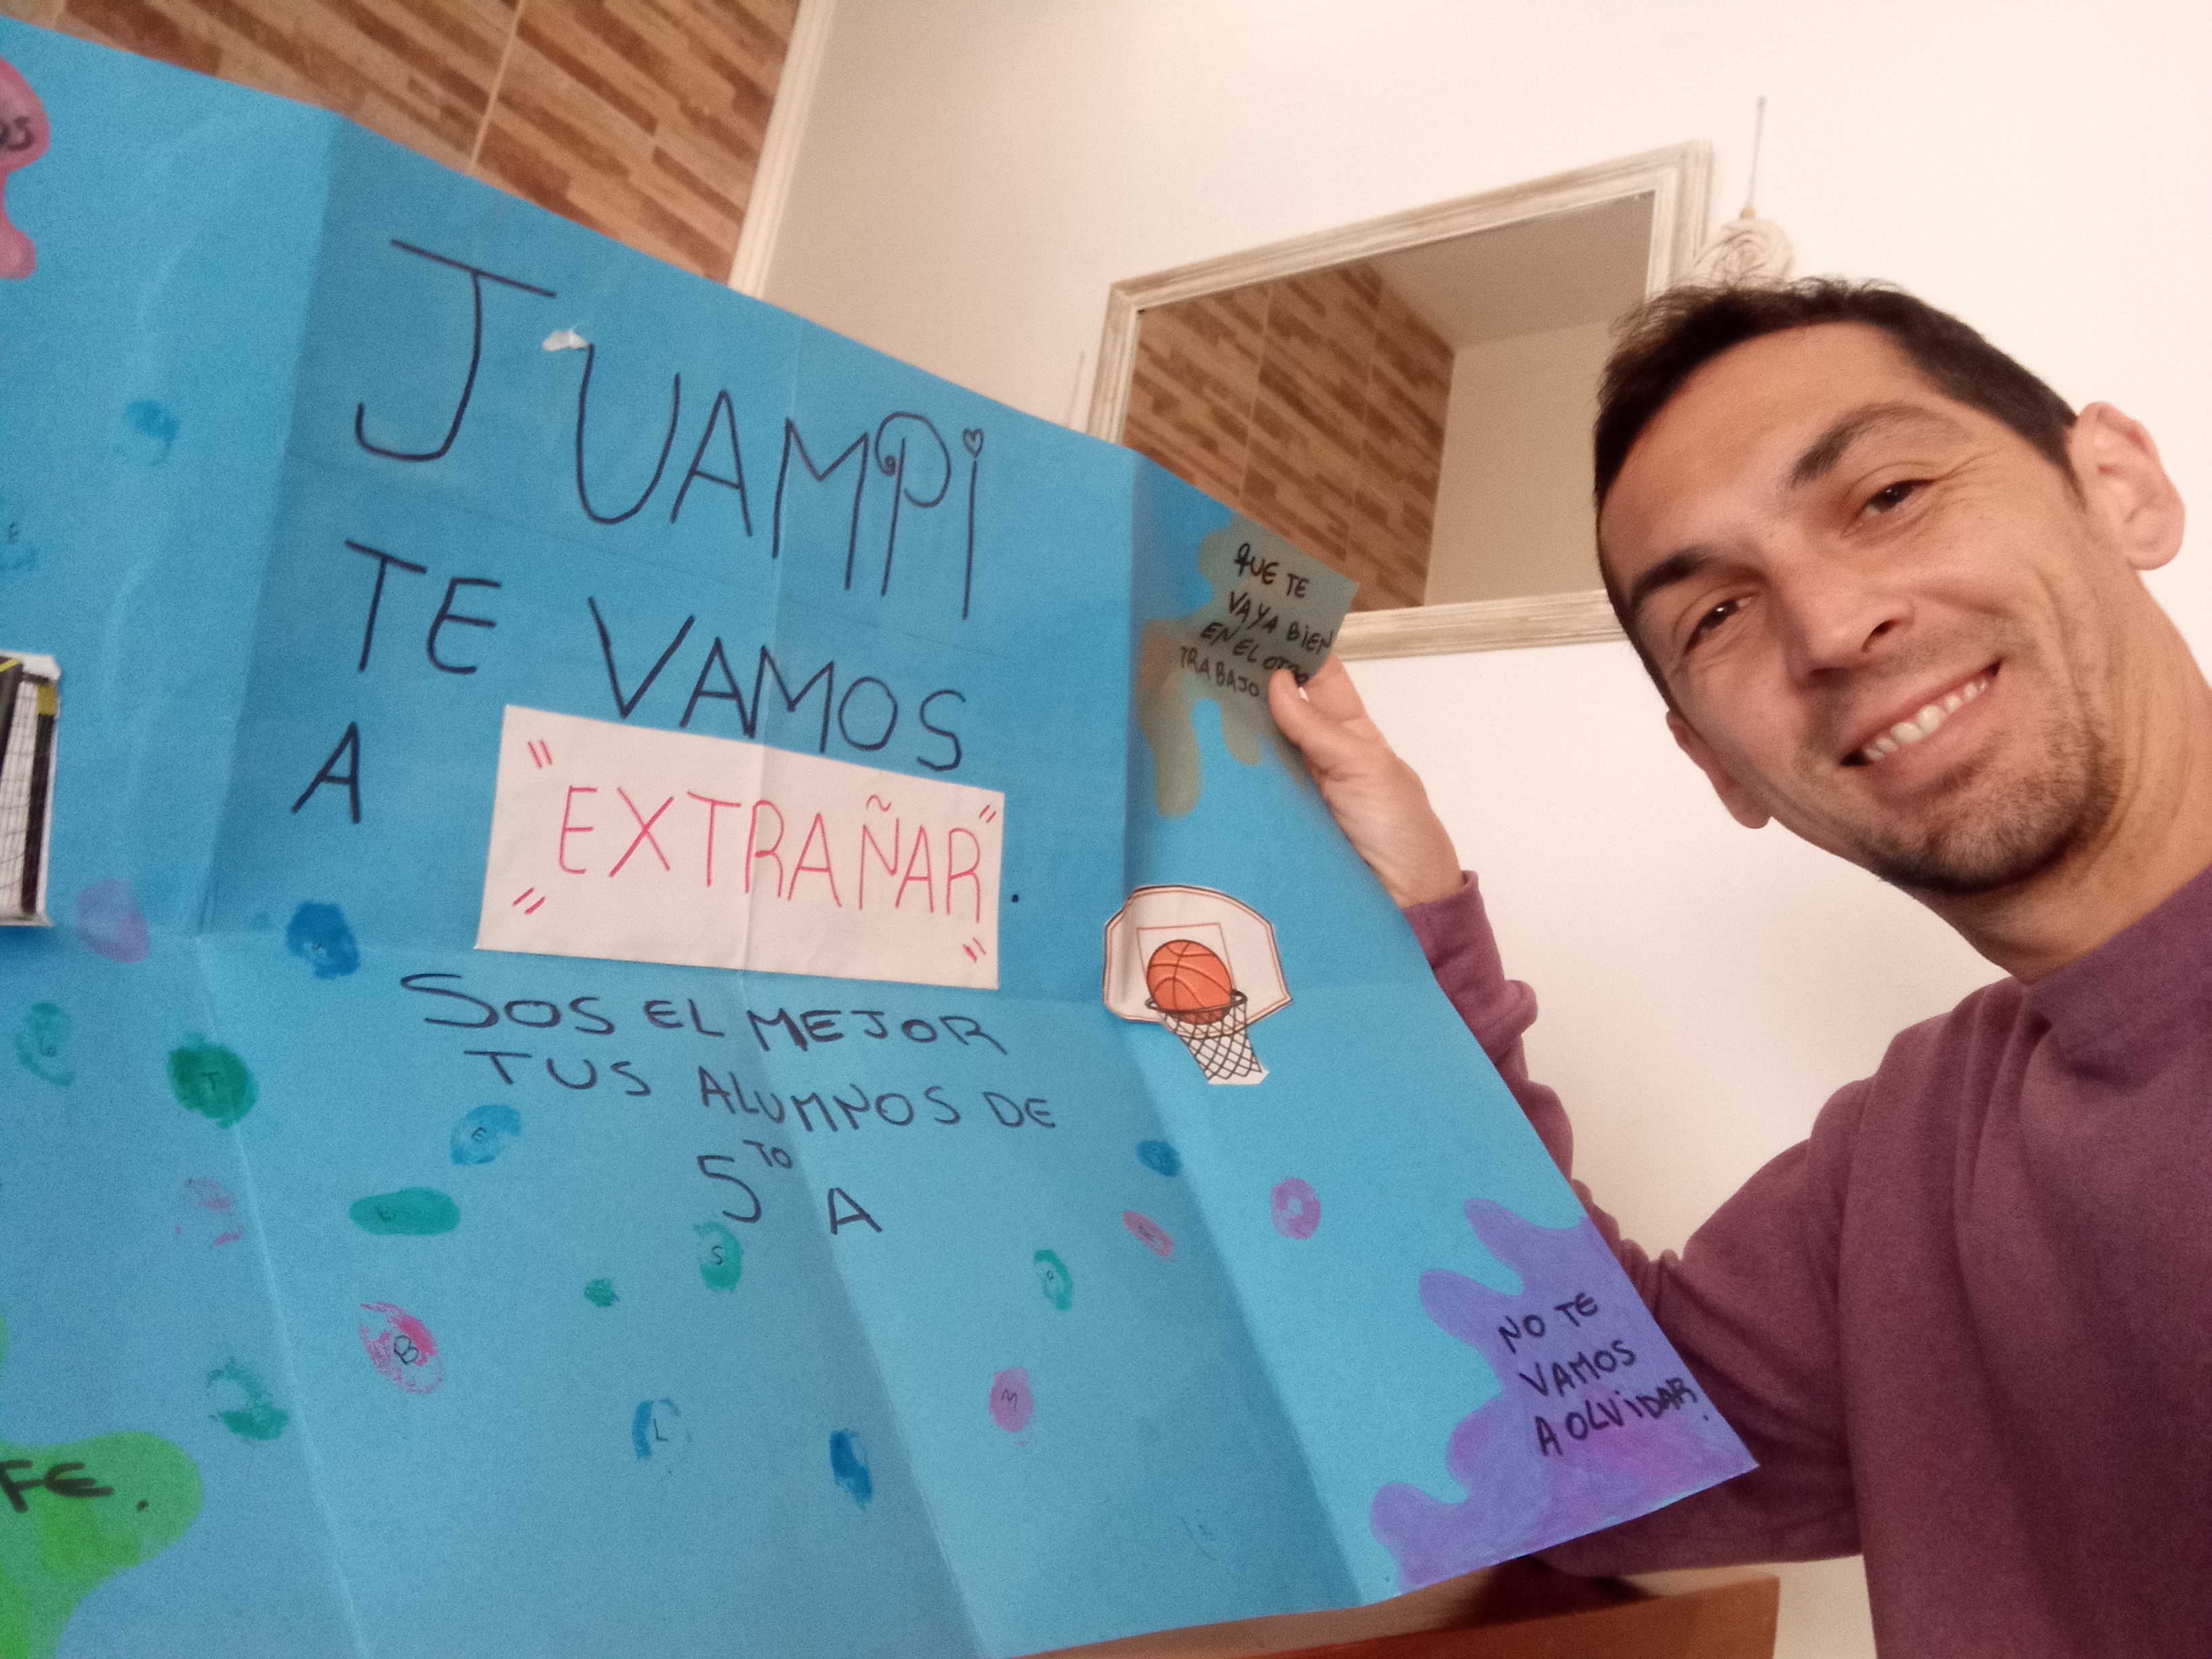 JUAMPI
TE VAMOS
A "EXTRAÑAR".
SOS EL MEJOR
TUS ALUMNOS DE
5TO A
QUE TE
VAYA BIEN
EN EL OTRO
TRABAJO
NO TE
VAMOS
A OLVIDAR.
FE.
E
T
E
S
B
L
M